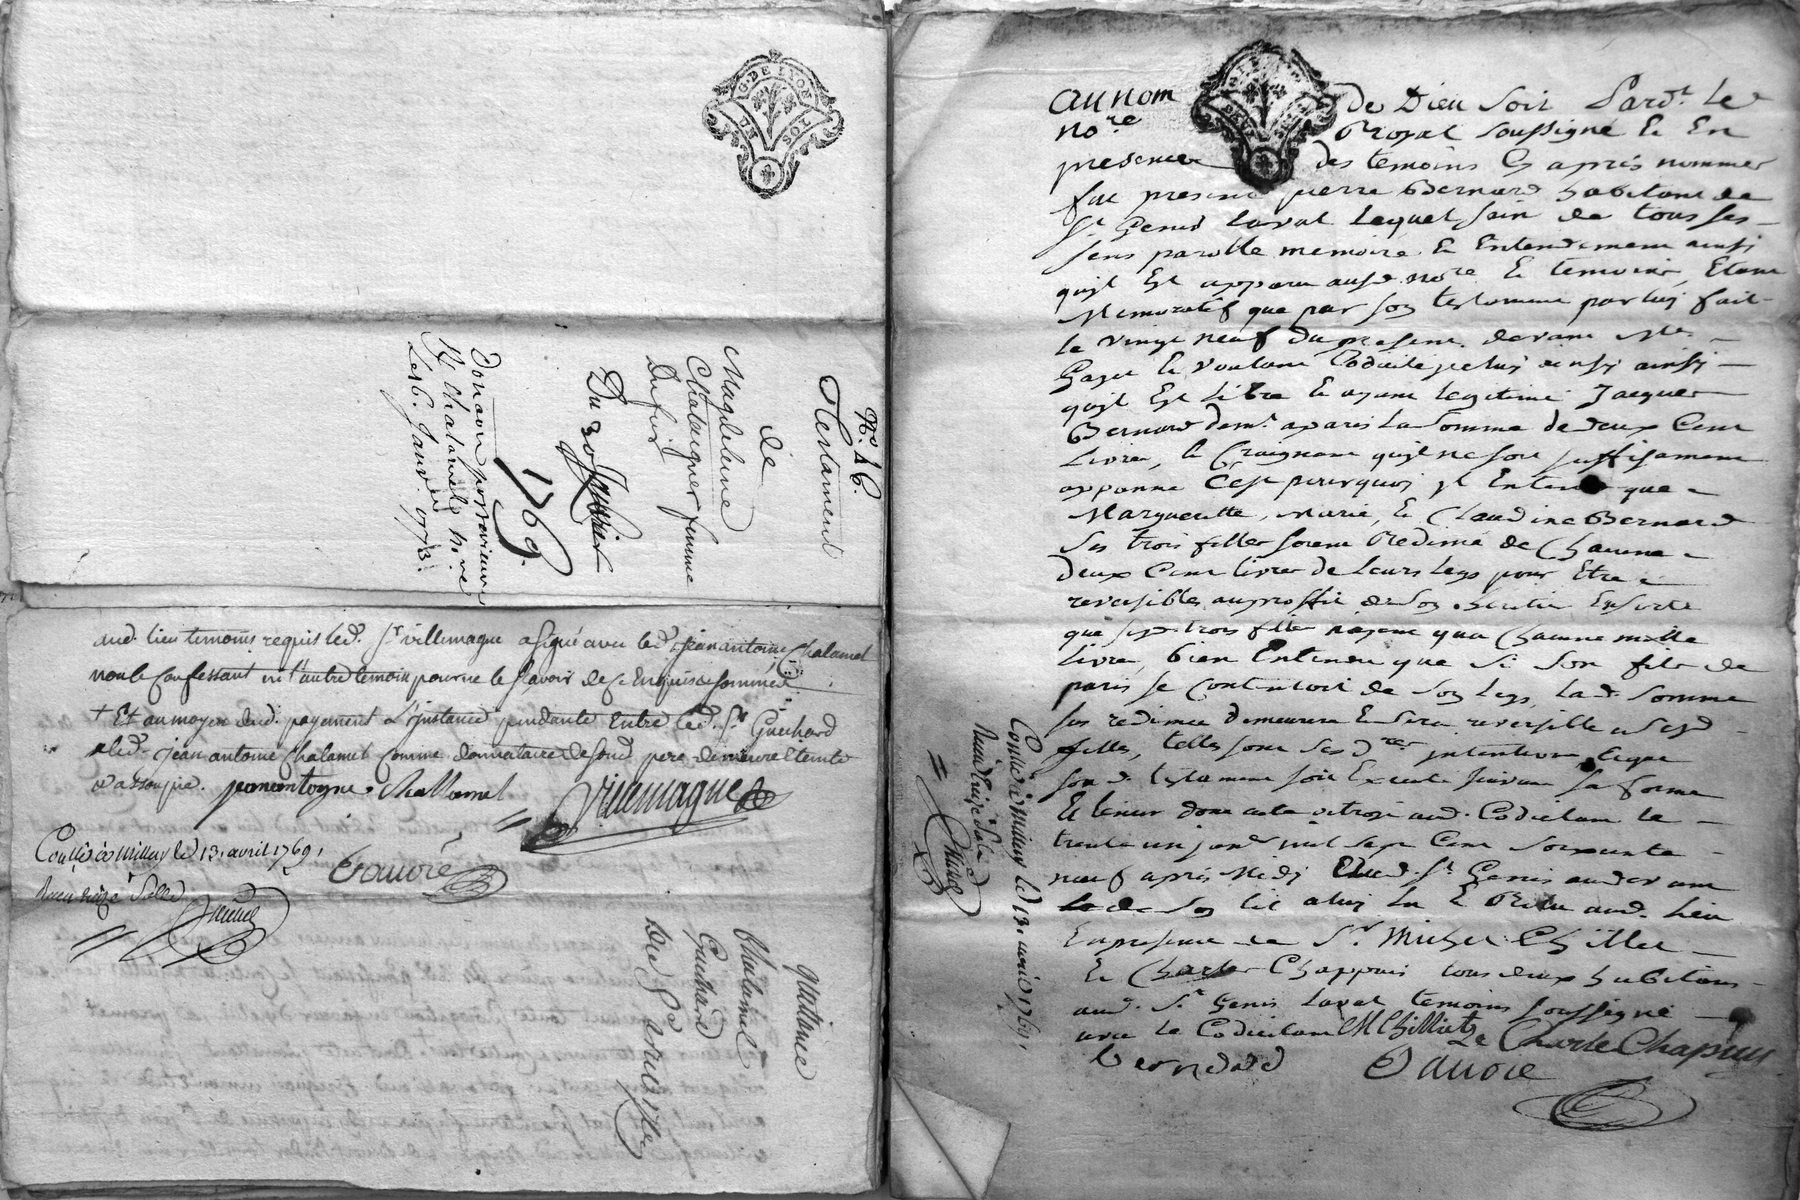 G. DE LYON
UN SOL
N.º 46.
Testament
de
Magdelene
Chataigner femme
Du 30 Janvier
1769.
Donaon posterieure
Le 16. Janv. 1773.
aud. lieu temoins requis led. Sr. villemagne a signé avec led. jean antoine Chalamel
non le Confessant ni l'autre temoin pour ne le sçavoir de ce Enquis & sommés
+ Et au moyen dud. payement l'instance pendante Entre led. Sr. Guichard
& led. jean antoine Chalamel Comme donnataire de sond. pere demeure Eteinte
& assoupie. jeanantoyne Challamel Villemagne
Conllé à Millery le 13. avril 1769.
Reçu treize s. Favoré
Quittance
Chalamel
Guichard
Du 8e
au nom de Dieu soit Pardt. le
nore Royal soussigné & En
presence des temoins Cy aprés nommés
fut present pierre Bernard habitant de
St. Genis Laval lequel sain de tous ses
sens parolle memoire & Entendement ainsi
qu'il Est apparu aud. nore & temoins, Etant
Memoratif que par son testament par luy fait
le vingt neuf du present devant Me.
Gayet & voulant Codicile
qu'il Est libre & ayant legitimé Jacques
Bernard demt. a paris la somme de deux Cent
Livres, & Craignant qu'il ne soit suffisament
appanné C'est pourquoy il Entend que
Margueritte, Marie, & Claudine Bernard
ses trois filles soient Redimé de Chacune
deux Cent livres de leurs legs pour Etre
reversibles au proffit de son heritier En sorte
que sesd. trois filles n'ayent que Chacune mille
livres, bien Entendu que si son fils de
paris se Contentoit de son legs, lad. somme
redimée demeurera & sera reversible a sesd.
filles, telles sont ses dres. intentions, & que
sond. testament soit Executé suivant sa forme
Et teneur dont acte octroyé aud. Codicilant le
trente un janr. mil sept Cent soixante
neuf aprés Midy Aud. St. Genis au devant
de son lit a luy lu & Relu aud. lieu
En presence de Sr. Michel Chilliet
& Charles Chappuis tous deux habitans
aud. St. Genis Laval temoins soussignés
avec le Codicilant M Chilliet
Charle Chapuis
Bernard Favoré
Conllé à Millery le 13. avril 1769.
Reçu treize s.